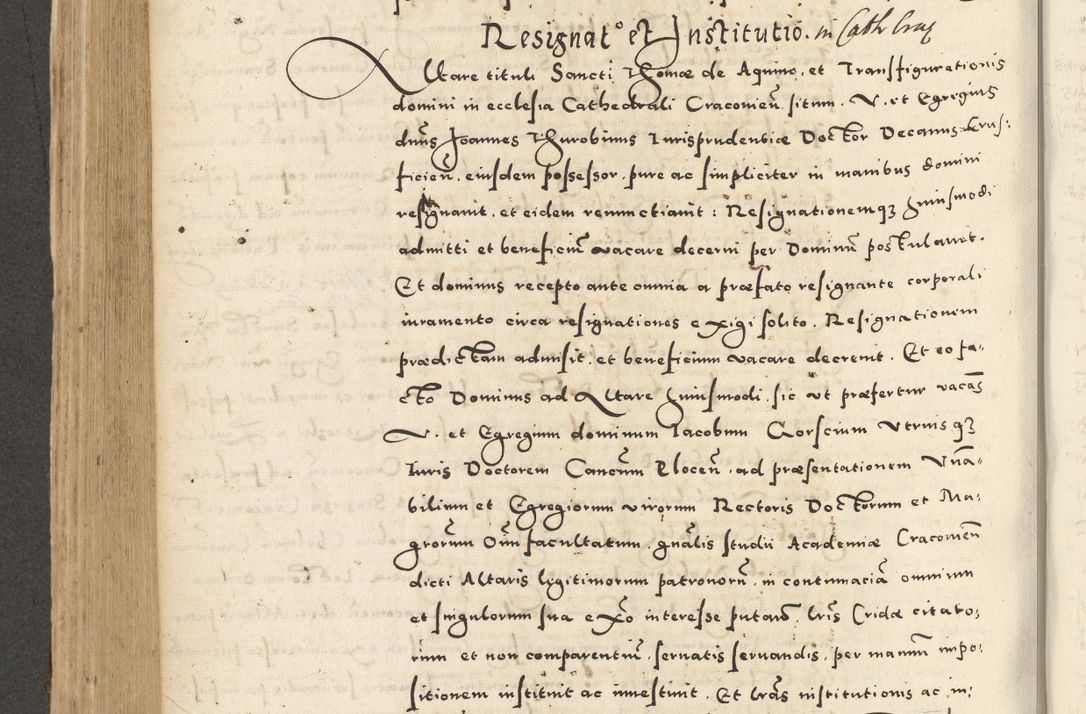 Resignat° et Institutio. in Cath Crac
Altare tituli Sancti Thomæ de Aquino, et Transfigurationis
domini in ecclesia Cathedrali Cracovien̄. situm. V. et Egregius
dn̄s Joannes Thurobinus Iurisprudentiæ Doctor Decanus Crus:
ficien̄. eiusdem possessor. pure ac simpliciter in manibus domini
resignavit. et eidem renunctiavit: Resignationemq₃ huiusmodi
admitti et beneficiū vacare decerni per Dominū postulavit.
Et dominus recepto ante omnia a præfato resignante corporali
iuramento circa resignationes exigi solito. Resignationem
prædictam admisit. et beneficium vacare decrevit. Et eo fa-
cto Dominus ad Altare huiusmodi. sic ut præfertur vacās
V. et Egregium dominum Iacobum Gorscium Utriusq₃
Iuris Doctorem Cancūm Plocen̄. ad præsentationem Vn̄a-
bilium et Egregiorum virorum Rectoris Doctorum et Ma-
grorūm Oīm facultatum. gn̄alis studii Academiæ Cracovien̄
dicti Altaris legitimorum patronorū. in contumaciā omnium
et singulorum sua ex̄o interesse putan̄. lr̄is Cridæ citato:
rum et non comparentiū. servatis servandis. per manūm impo:
sitionem instituit ac investivit. Et lr̄as institutionis ac in: